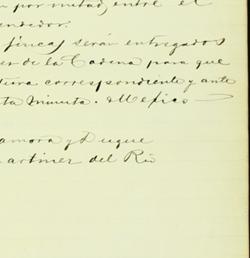 por mitad, entre el
endedor.
fincas serán entregados
er de la Cadena para que
tura correspondiente y ante
ta minuta. México
amora y Duque
artinez del Rio